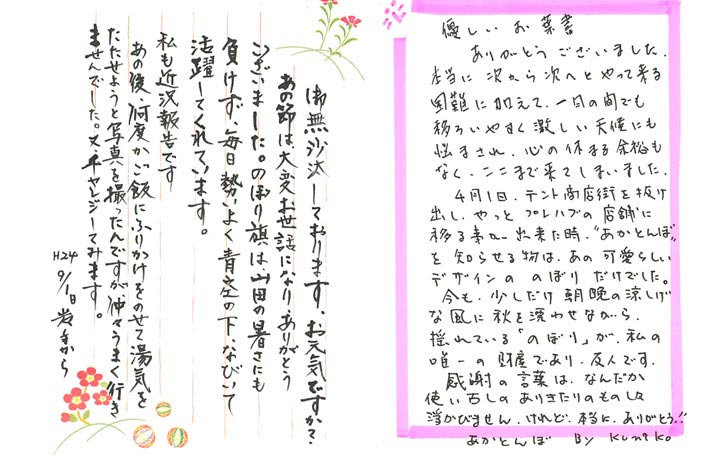 御無沙汰しております。お元気ですか?
あの節は大変お世話になり、ありがとう
ございました。のぼり旗は、山田の暑さにも
負けず、毎日勢いよく青空の下、なびいて
活躍してくれています。
私も近況報告です
あの後、何度かご飯にふりかけをのせて湯気を
たたせようと写真を撮ったんですが仲々うまく行き
ませんでした。又、チャレンジしてみます。
H24 9/1日 岩手から
優しいお葉書
ありがとうございました。
本当に次から次へとやって来る
困難に加えて、一日の間でも
移ろいやすく激しい天候にも
悩まされ、心の休まる余裕も
なく、ここまで来てしまいました。
4月1日、テント商店街を抜け
出し、やっとプレハブの店舗に
移る事が出来た時、"あかとんぼ"
を知らせる物は、あの可愛らしい
デザインの のぼり だけでした。
今も、少しだけ朝晩の涼しげ
な風に秋を漂わせながら、
揺れている「のぼり」が、私の
唯一の財産であり、友人です。
感謝の言葉は、なんだか
使い古しのありきたりのものしか
浮かびません、けれど、本当に、ありがとう!!
あかとんぼ By Kuniko